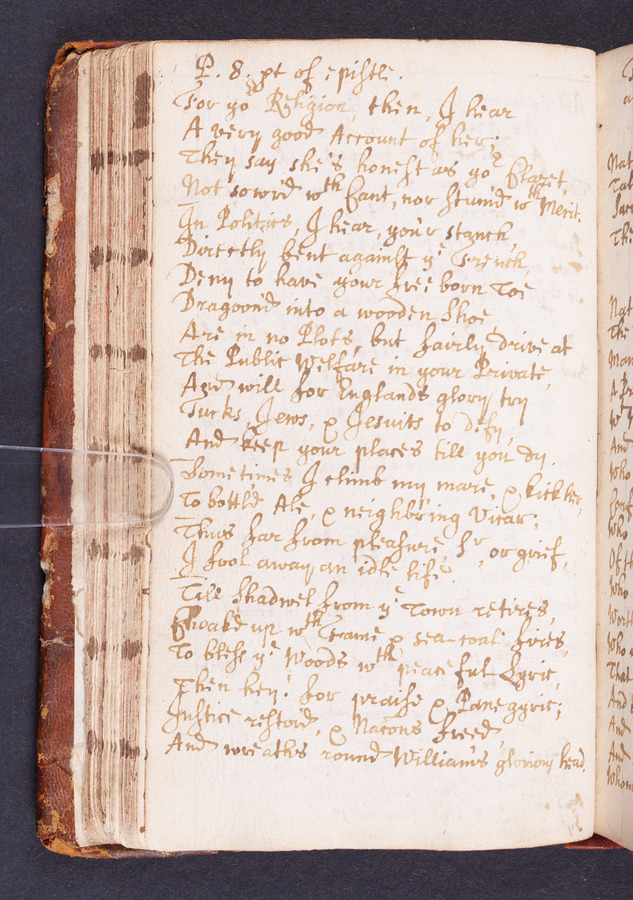 P. 8. pt of epistle.
For yor Religion, then, I hear
A very good Account of her;
They say she's honest as yor Claret,
Not sowr'd wth Cant, nor stum'd wth Merit.
In Politics, I hear, you'r stanch,
Directly bent against ye French,
Deny to have your free born Toe
Dragoon'd into a wooden Shoe
Are in no Plots, but fairly drive at
The Public Welfare in your Private,
And will for Englands glory try
Turks, Jews, & Jesuits to defy,
And keep your places till you dy.
Sometimes I climb my mare, & kick her
To bottld Ale, & neighbring Vicar;
Thus far from pleasure, Sr, or grief,
I fool away an idle life
Till Shadwel from ye Town retires,
Choak'd up wth Fame & sea-coal fires,
To bless ye Woods wth peaceful Lyric,
Then hey! for praise & Panegyric;
Justice restord, & Nacons freed,
And wreaths round William's glorious head.